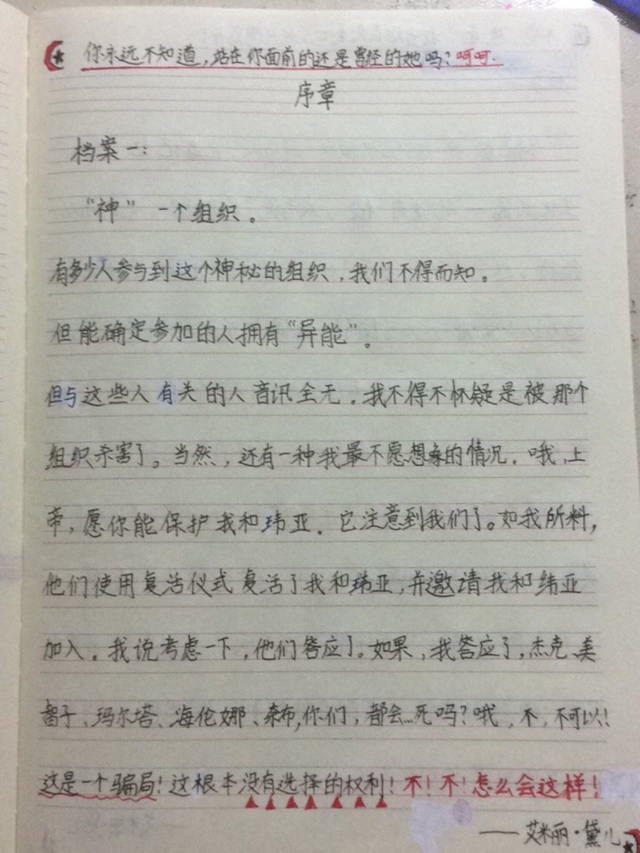 你永远不知道，站在你面前的还是曾经的她吗？呵呵.
序章
档案一：
“神” 一个组织。
有多少人参与到这个神秘的组织，我们不得而知。
但能确定参加的人拥有“异能”。
但与这些人有关的人音讯全无，我不得不怀疑是被那个
组织杀害了。当然，还有一种我最不愿想象的情况，哦，上
帝，愿你能保护我和玮亚，它注意到我们了。如我所料，
他们使用复活仪式复活了我和玮亚，并邀请我和纬亚
加入。我说考虑一下，他们答应了。如果，我答应了，杰克、美
智子、玛尔塔、海伦娜、奈布，你们，都会…死吗？哦，不，不可以！
这是一个骗局！这根本没有选择的权利！不！不！怎么会这样！
——艾米丽·黛儿